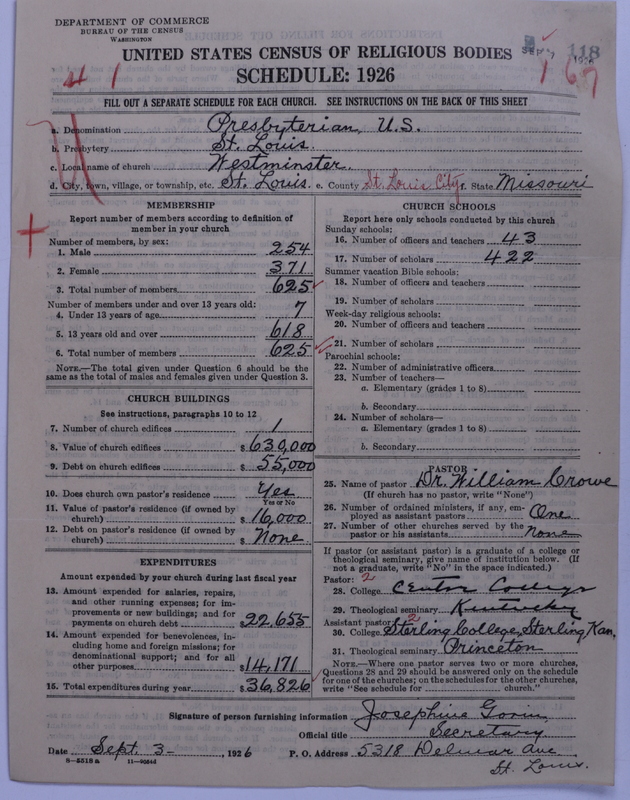 DEPARTMENT OF COMMERCE
BUREAU OF THE CENSUS
WASHINGTON
118
UNITED STATES CENSUS OF RELIGIOUS BODIES
SCHEDULE: 1926
4 1
1 67
FILL OUT A SEPARATE SCHEDULE FOR EACH CHURCH. SEE INSTRUCTIONS ON THE BACK OF THIS SHEET
a. Denomination Presbyterian, U.S.
b. Presbytery St. Louis.
c. Local name of church Westminster.
d. City, town, village, or township, etc. St. Louis. e. County St. Louis City f. State Missouri
MEMBERSHIP
Report number of members according to definition of
member in your church
Number of members, by sex:
1. Male 254
2. Female 371
3. Total number of members 625
Number of members under and over 13 years old:
4. Under 13 years of age 7
5. 13 years old and over 618
6. Total number of members 625
NOTE.—The total given under Question 6 should be
the same as the total of males and females given under Question 3.
CHURCH BUILDINGS
See instructions, paragraphs 10 to 12
7. Number of church edifices 1
8. Value of church edifices $630,000
9. Debt on church edifices $55,000
10. Does church own pastor's residence Yes
Yes or No
11. Value of pastor's residence (if owned by
church) $16,000
12. Debt on pastor's residence (if owned by
church) $None
EXPENDITURES
Amount expended by your church during last fiscal year
13. Amount expended for salaries, repairs,
and other running expenses; for im-
provements or new buildings; and for
payments on church debt $22,655
14. Amount expended for benevolences, in-
cluding home and foreign missions; for
denominational support; and for all
other purposes $14,171
15. Total expenditures during year $36,826
CHURCH SCHOOLS
Report here only schools conducted by this church
Sunday schools:
16. Number of officers and teachers 43
17. Number of scholars 422
Summer vacation Bible schools:
18. Number of officers and teachers
19. Number of scholars
Week-day religious schools:
20. Number of officers and teachers
21. Number of scholars
Parochial schools:
22. Number of administrative officers
23. Number of teachers—
a. Elementary (grades 1 to 8)
b. Secondary
24. Number of scholars—
a. Elementary (grades 1 to 8)
b. Secondary
PASTOR
25. Name of pastor Dr. William Crowe
(If church has no pastor, write "None")
26. Number of ordained ministers, if any, em-
ployed as assistant pastors One
27. Number of other churches served by the
pastor or his assistants None
If pastor (or assistant pastor) is a graduate of a college or
theological seminary, give name of institution below. (If
not a graduate, write "No" in the space indicated.)
Pastor: 2
28. College Center College
29. Theological seminary Kentucky
Assistant pastor: 2
30. College Sterling College, Sterling Kan.
31. Theological seminary Princeton
NOTE.—Where one pastor serves two or more churches,
Questions 28 and 29 should be answered only on the schedule
for one of the churches; on the schedules for the other churches,
write "See schedule for church."
Signature of person furnishing information Josephine Gorin
Official title Secretary
Date Sept. 3-, 1926 P. O. Address 5318 Delmar Ave
St. Louis.
8-5318a 11-9054d